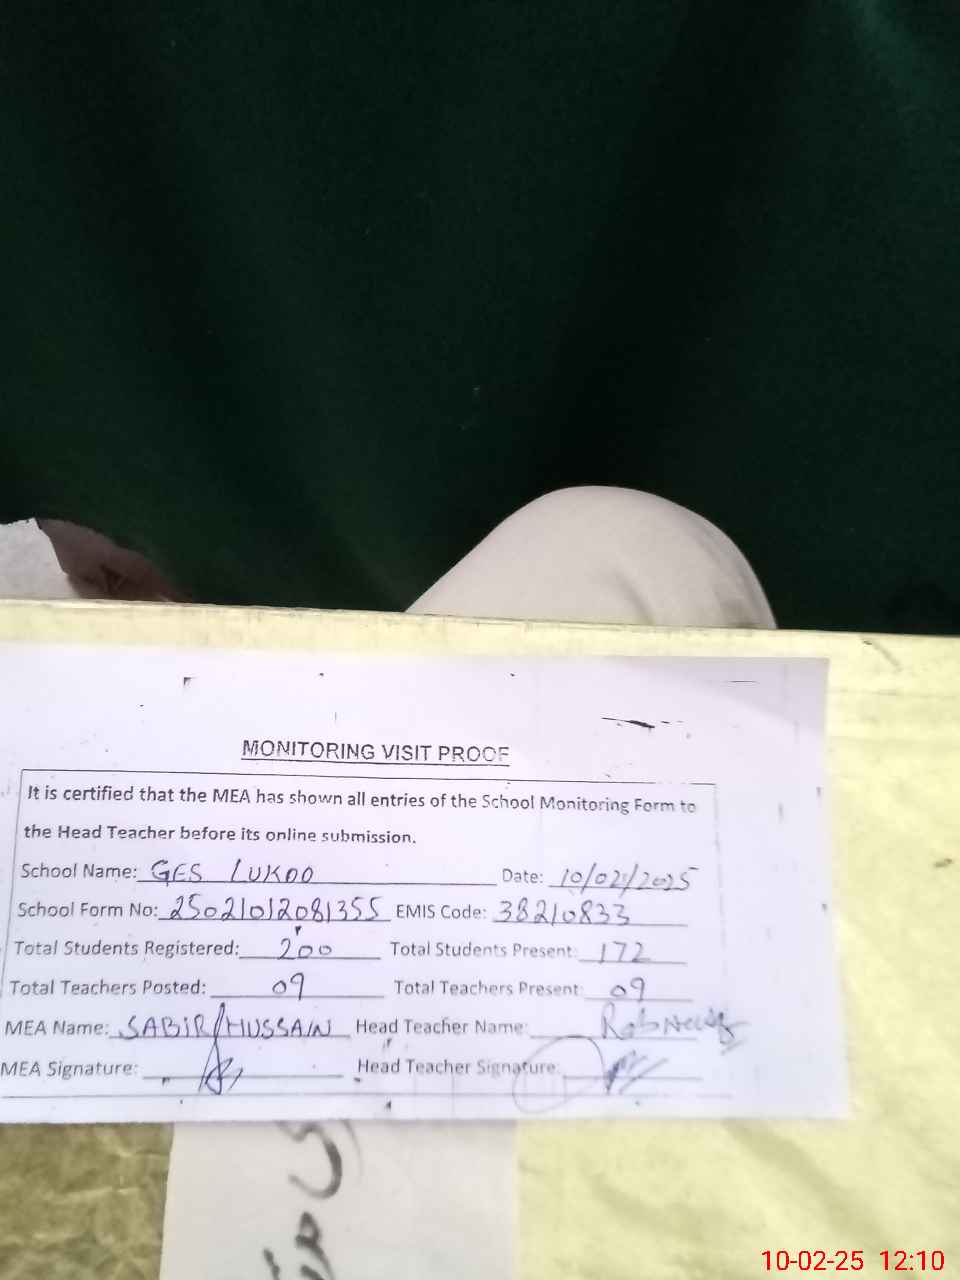 MONITORING VISIT PROOF
It is certified that the MEA has shown all entries of the School Monitoring Form to
the Head Teacher before its online submission.
School Name: GES LUKOO Date: 10/02/2025
School Form No: 25021012081355 EMIS Code: 38210833
Total Students Registered: 200 Total Students Present: 172
Total Teachers Posted: 09 Total Teachers Present: 09
MEA Name: SABIR HUSSAIN Head Teacher Name:
MEA Signature: Head Teacher Signature:
10-02-25 12:10